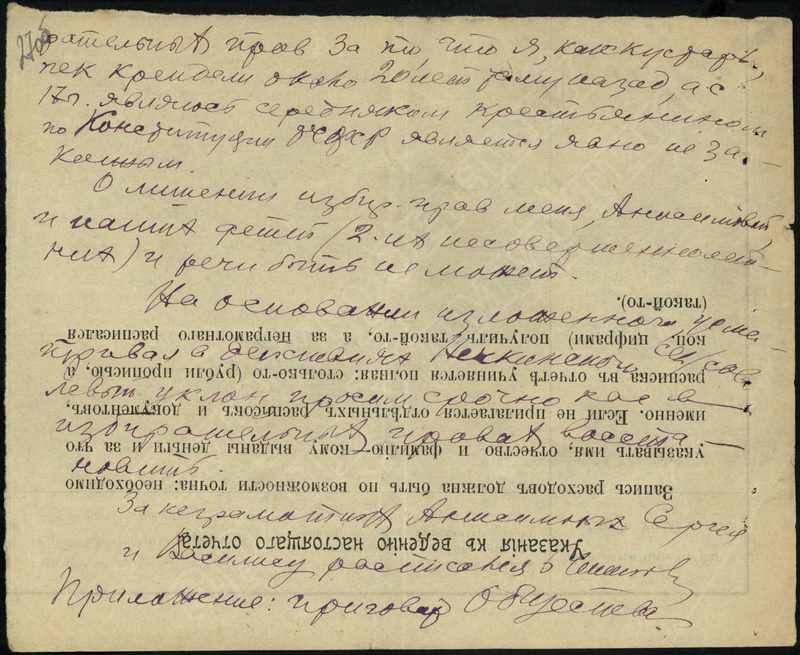 270б
рательных прав за то, что я, как кустарь,
пек крендели около 20 лет тому назад, а с
17 г. являюсь середняком крестьянином
по Конституции РСФСР является явно не за-
конным.
О лишении избир. прав меня,
и наших детей (2-их несовершеннолет-
них) и речи быть не может.
На основании изложенного, усма-
тривая в действиях сов.
левый уклон просим срочно нас в
избирательных правах восста-
новить.
За неграмотных Анисимовых Сергея
и Василису расписался
Приложение: приговор Общества
Указанія къ веденію настоящаго отчета.
Запись расходовъ должна быть по возможности точна: необходимо
указывать имя, отчество и фамилію—кому выданы деньги и за что
именно. Если не прилагается отдѣльныхъ расписокъ и документовъ,
расписка въ отчетъ учиняется полная: столько-то (рубли прописью, а
коп. цифрами) получилъ такой-то, а за неграмотнаго расписался
(такой-то).